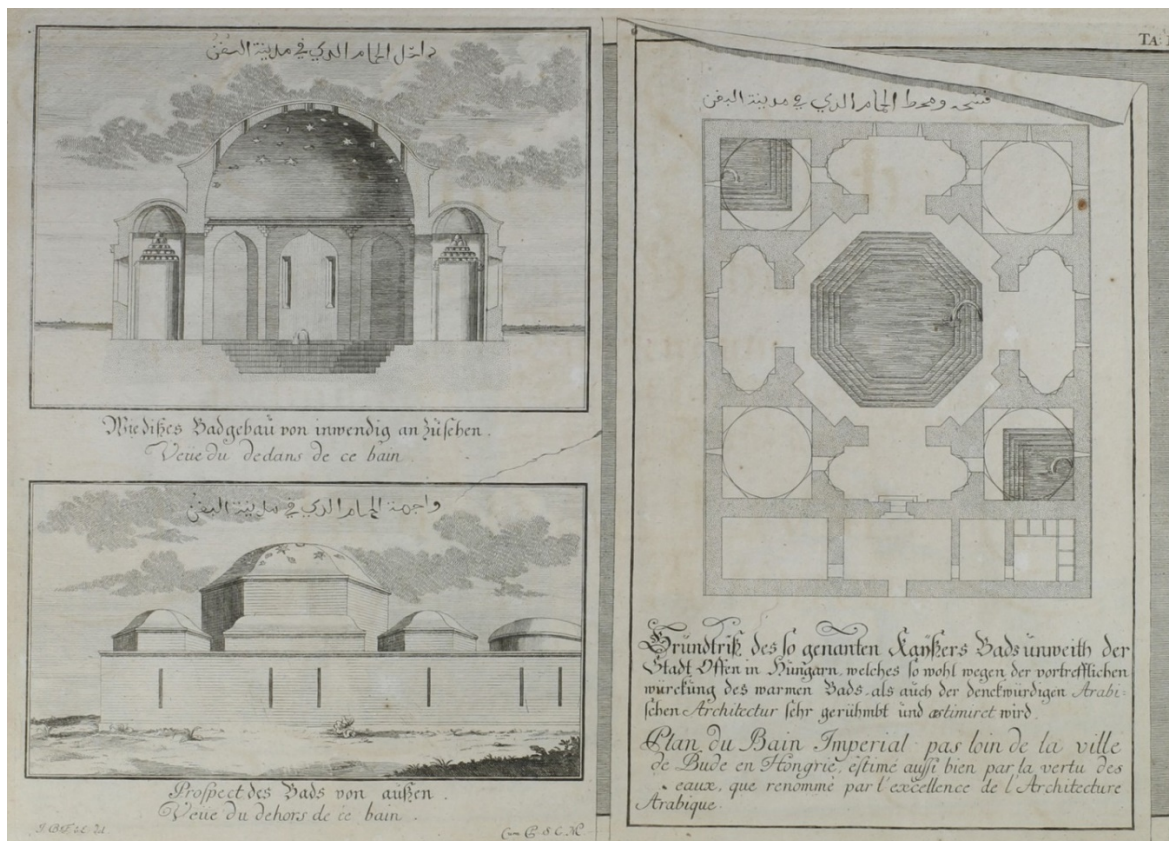 داخل الحمام الدي في مدينة البفن
Wie dißes Badgebaü von inwendig an züsehen.
Veüe du dedans de ce bain
واجهة الحمام الدي في مدينة البفن
Prospect des Bads von außen.
Veüe du dehors de ce bain.
Cum P. S. C. M.
TA:
الحمام الدي في مدينة البفن
Gründtriß des so genanten Kaÿßers Bads ünweith der
Stadt Offen in Hüngarn, welches so wohl wegen der vortrefflichen
würckung des warmen Bads, als auch der denckwürdigen Arabi-
schen Architectur sehr gerühmbt und æstimiret wird.
Plan du Bain Imperial pas loin de la ville
de Bude en Hongrie, estimé aussi bien par la vertu des
eaux, que renommé par l'excellence de l'Architecture
Arabique.